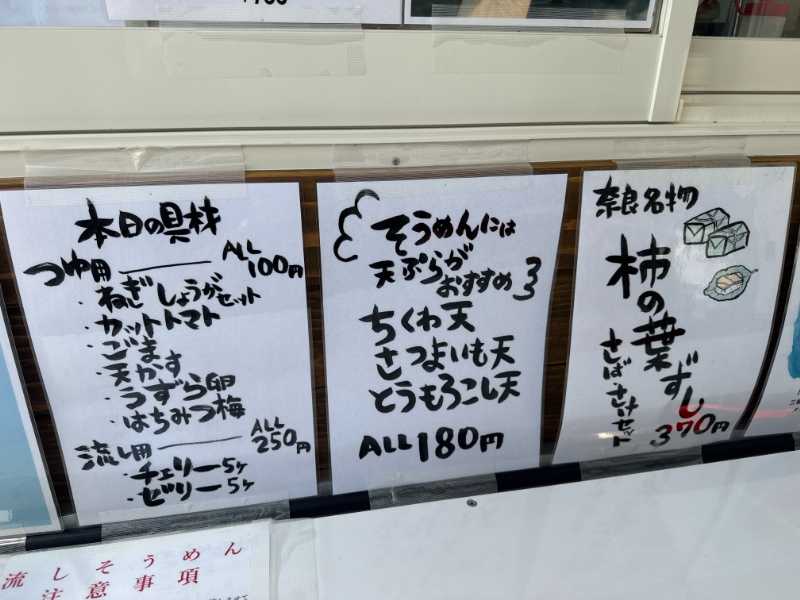 本日の具材
つゆ用 ALL 100円
・ねぎしょうがセット
・カットトマト
・ごま
・天かす
・うずら卵
・はちみつ梅
流し用 ALL 250円
・チェリー5ヶ
・ゼリー5ヶ
そうめんには
天ぷらが
おすすめ
ちくわ天
さつまいも天
とうもろこし天
ALL 180円
奈良名物
柿の葉ずし
さば・さけセット
370円
流しそうめん
注意事項